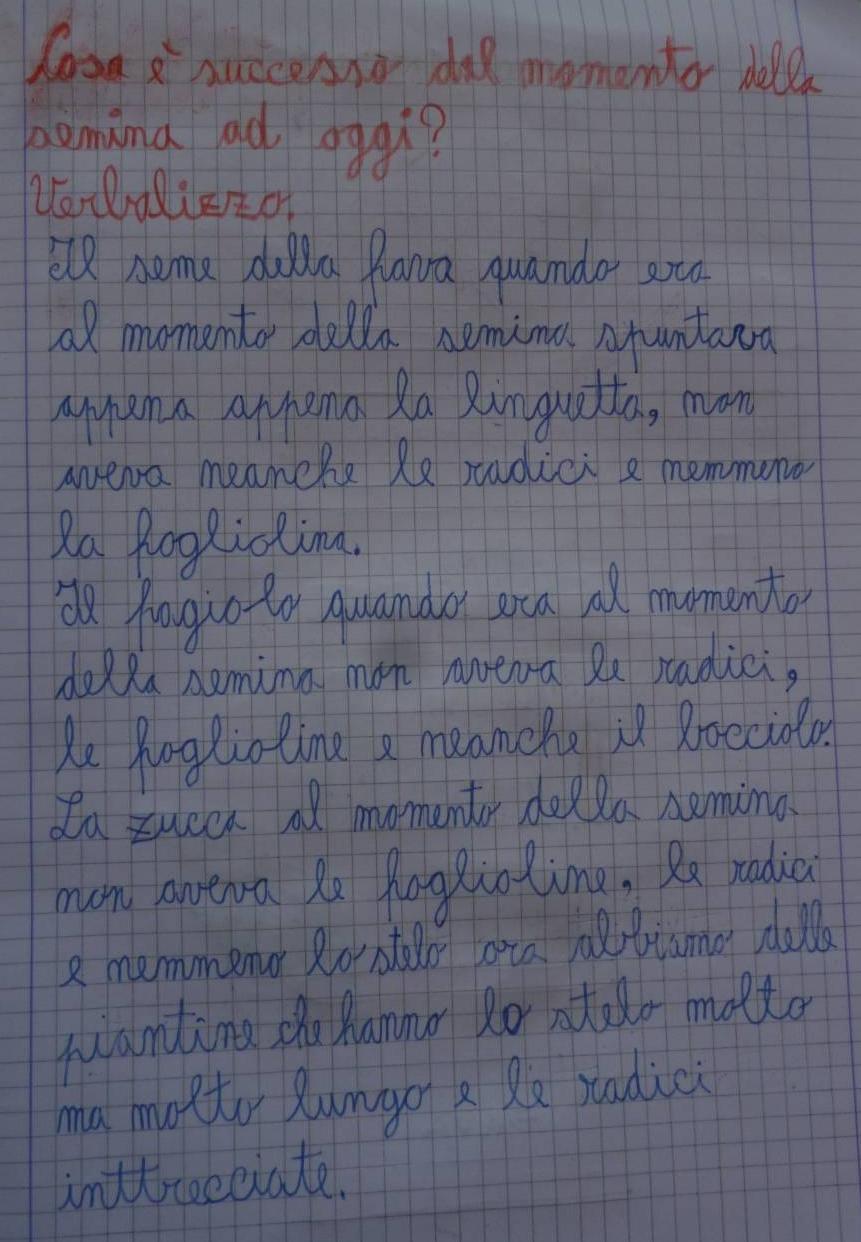 Cosa è successo dal momento della
semina ad oggi?
Verbalizzo.
Il seme della fava quando era
al momento della semina spuntava
appena appena la linguetta, non
aveva neanche le radici e nemmeno
la fogliolina.
Il fagiolo quando era al momento
della semina non aveva le radici,
le foglioline e neanche il bocciolo.
La zucca al momento della semina
non aveva le foglioline, le radici
e nemmeno lo stelo ora abbiamo delle
piantine che hanno lo stelo molto
ma molto lungo e le radici
inttrecciate.